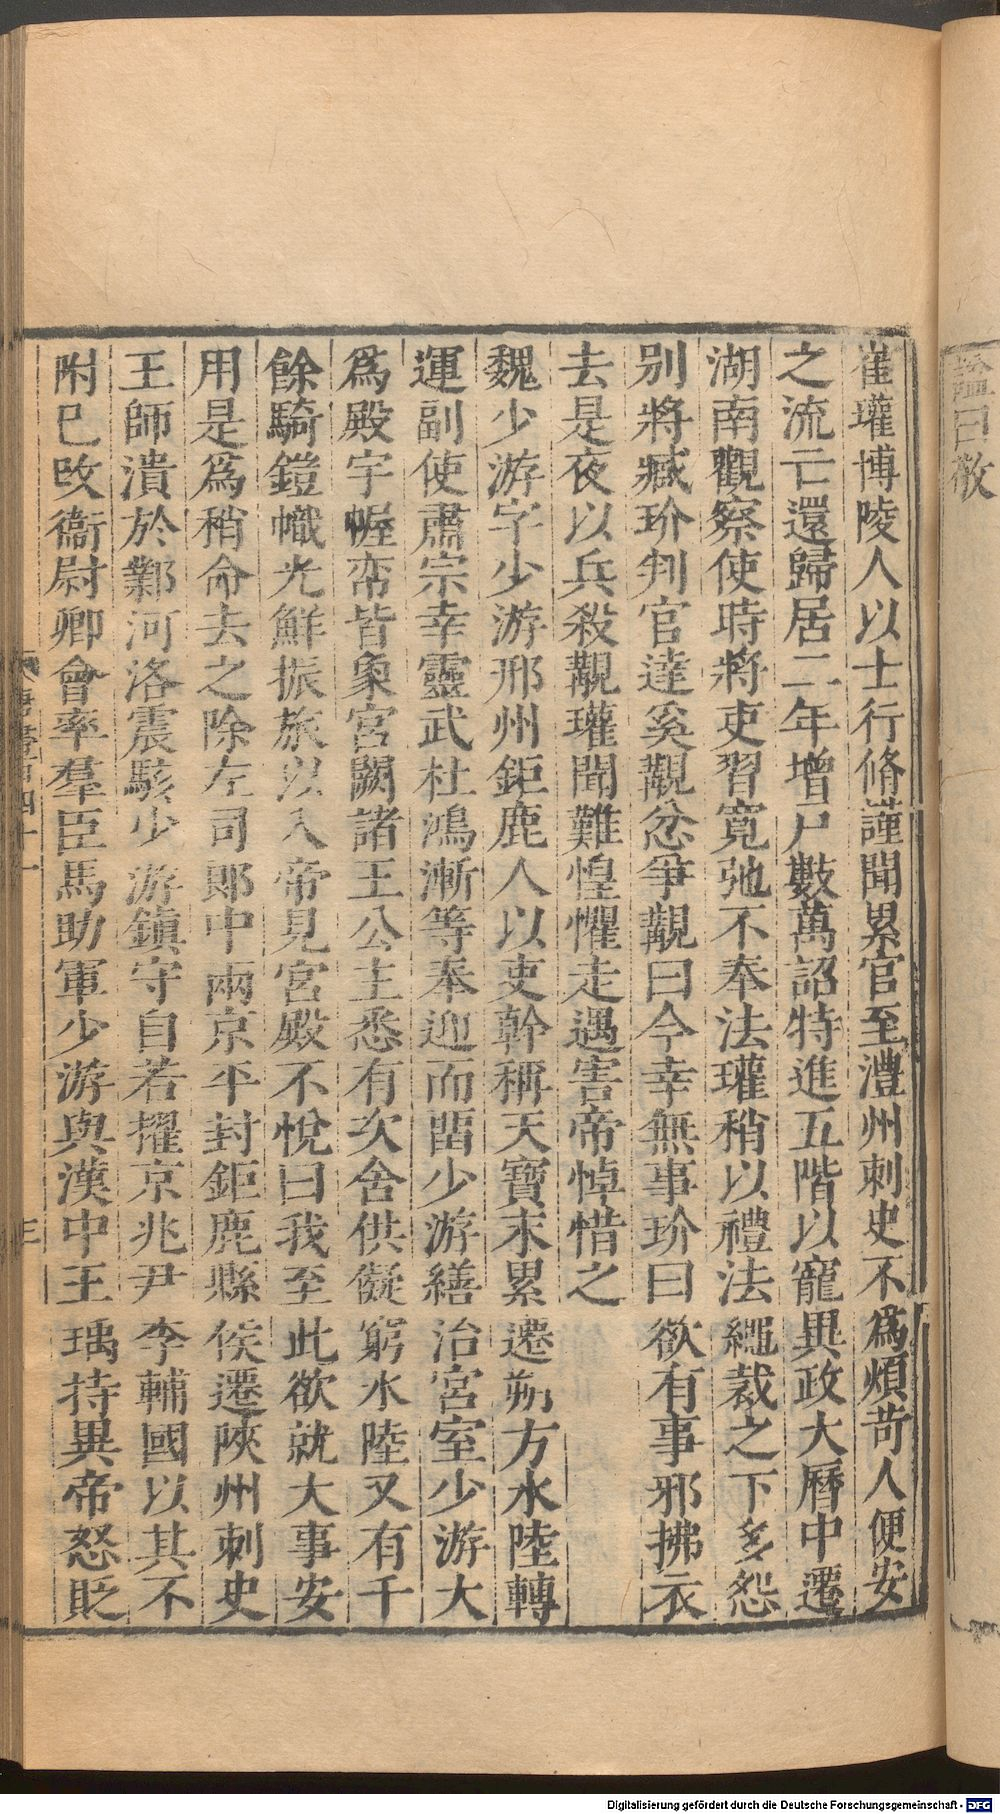 謚曰敬
崔瓘博陵人以士行脩謹聞累官至澧州刺史不爲煩苛人便安
之流亡還歸居二年增戶數萬詔特進五階以寵異政大曆中遷
湖南觀察使時將吏習寬弛不奉法瓘稍以禮法繩裁之下多怨
别將臧玠判官達奚覯忿爭覯曰今幸無事玠曰欲有事邪拂衣
去是夜以兵殺覯瓘聞難惶懼走遇害帝悼惜之
魏少游字少游邢州鉅鹿人以吏幹稱天寶末累遷朔方水陸轉
運副使肅宗幸靈武杜鴻漸等奉迎而留少游繕治宮室少游大
爲殿宇幄帟皆象宮闕諸王公主悉有次舍供儗窮水陸又有千
餘騎鎧幟光鮮振旅以入帝見宮殿不悅曰我至此欲就大事安
用是爲稍命去之除左司郞中兩京平封鉅鹿縣侯遷陝州刺史
王師潰於鄴河洛震駭少游鎮守自若擢京兆尹李輔國以其不
附已改衞尉卿會率羣臣馬助軍少游與漢中王瑀持異帝怒貶
唐書百四十一
三
Digitalisierung gefördert durch die Deutsche Forschungsgemeinschaft - DFG